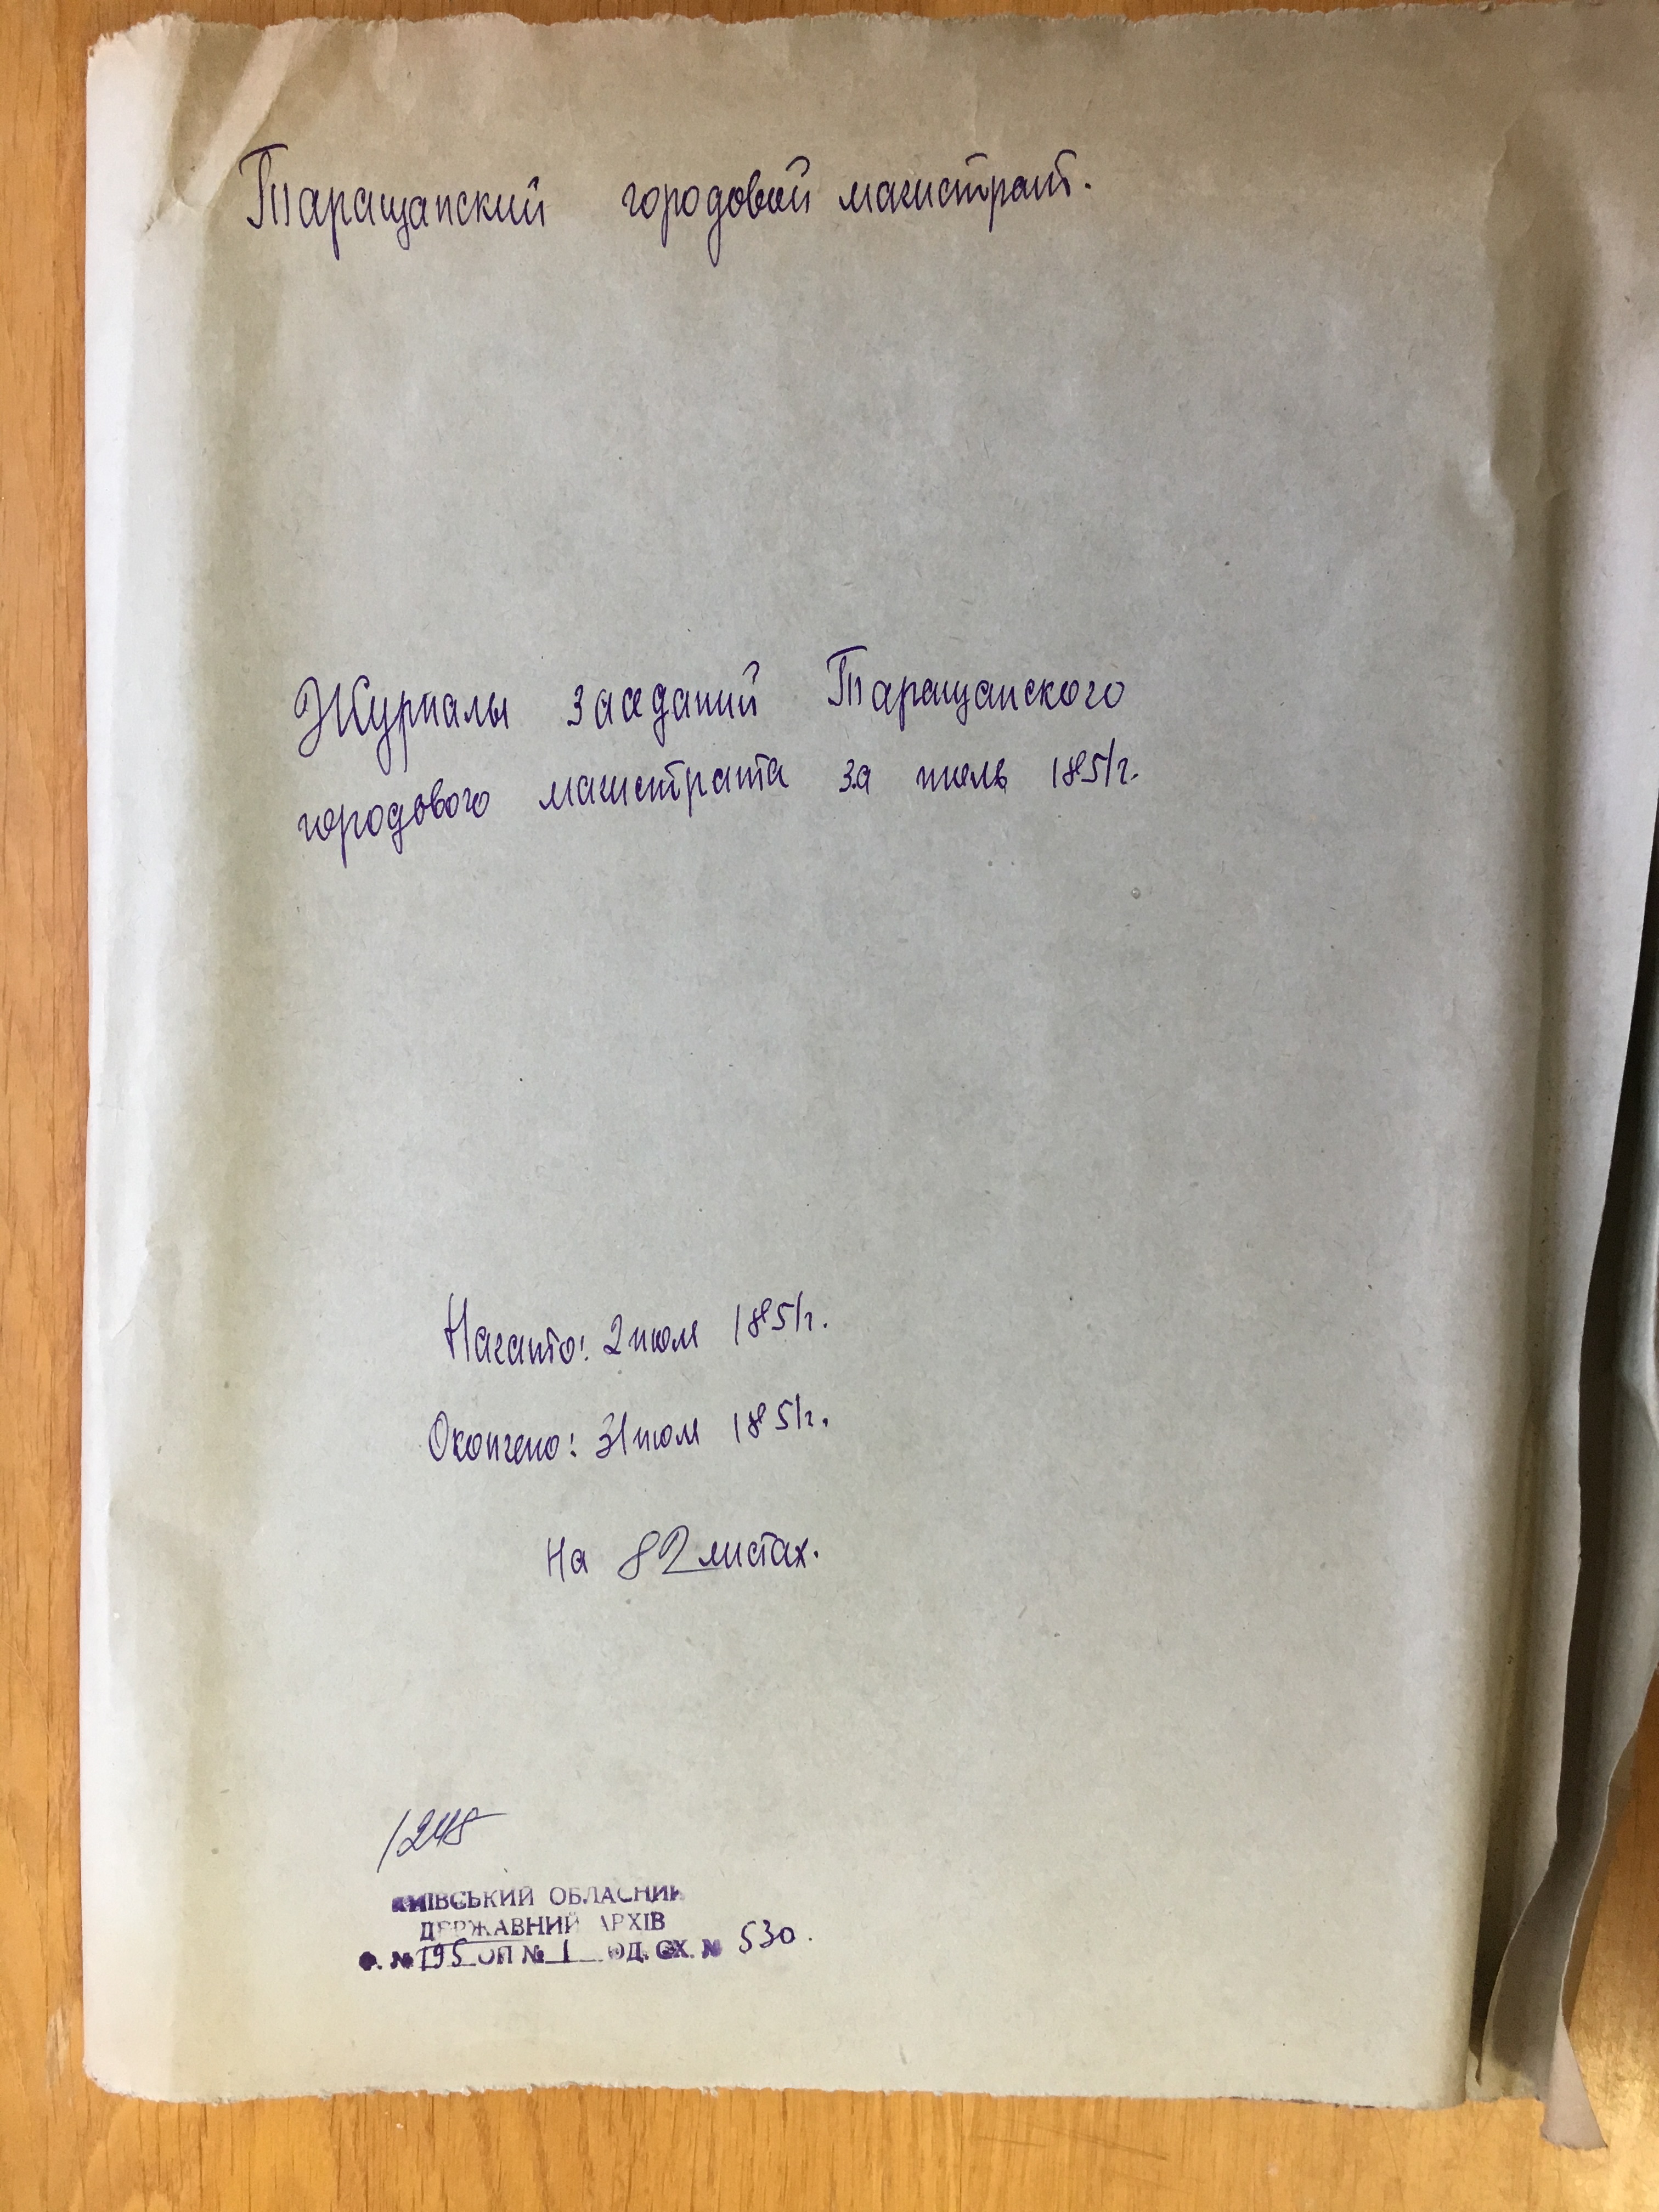 Таращанский городовой магистрат.
Журналы заседаний Таращанского
городового магистрата за июль 1851г.
Начато: 2 июля 1851г.
Окончено: 31 июля 1851г.
На 82 листах.
1248
КИЇВСЬКИЙ ОБЛАСНИЙ
ДЕРЖАВНИЙ АРХІВ
Ф. № 195 ОП № 1 ОД. СХ. № 530.